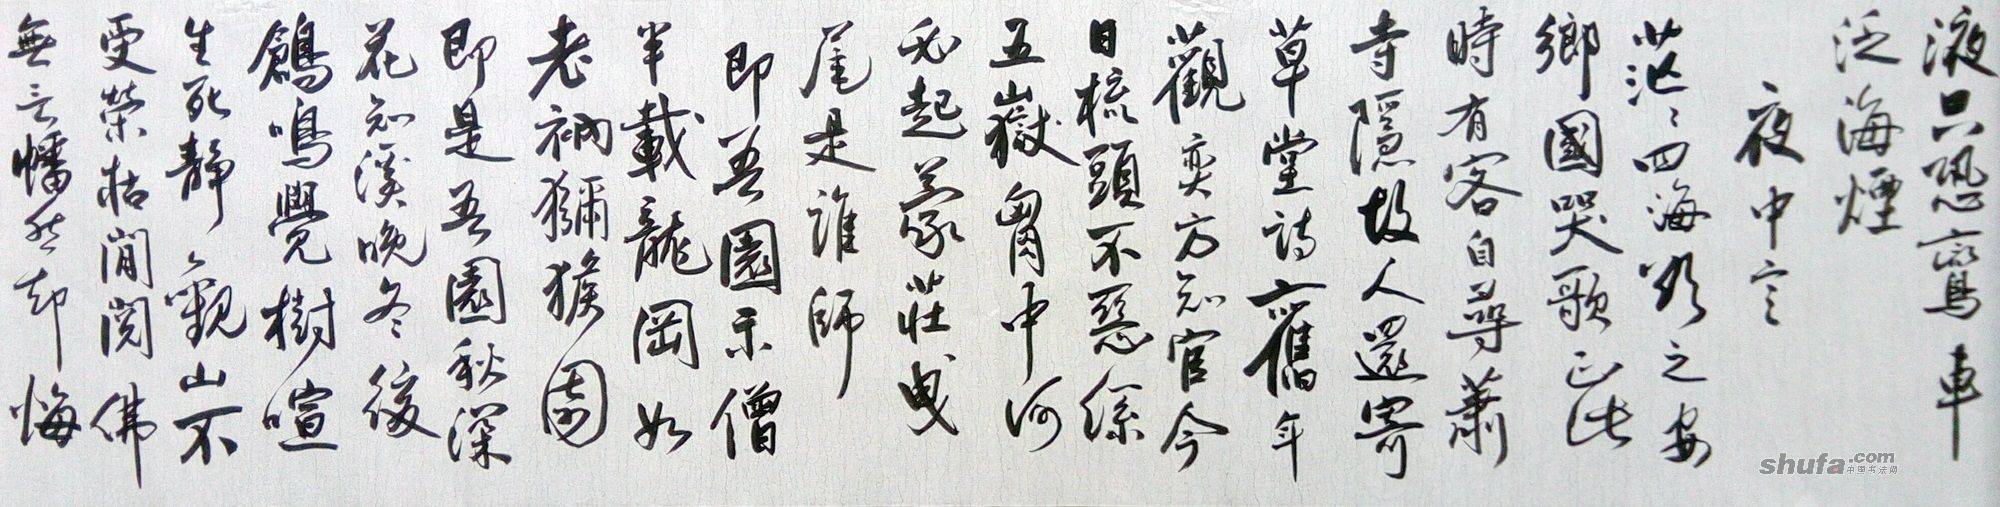 液只恐鸞車
泛海煙
夜中言
茫〻四海欲之安
鄉國哭歌正此
時有客自尋蕭
寺隱故人還寄
草堂詩舊年
觀奕方知官今
日梳頭不惡絲
五嶽胷中何
必起蒙莊曳
尾是誰師
即吾園示僧
半載龍岡如
老衲獼猴園
即是吾園秋深
花知溪晚冬後
鶬鳴覺樹喧
生死靜觀山不
受榮枯閒閱佛
無言幡然却悔
shufa.com
中国书法网